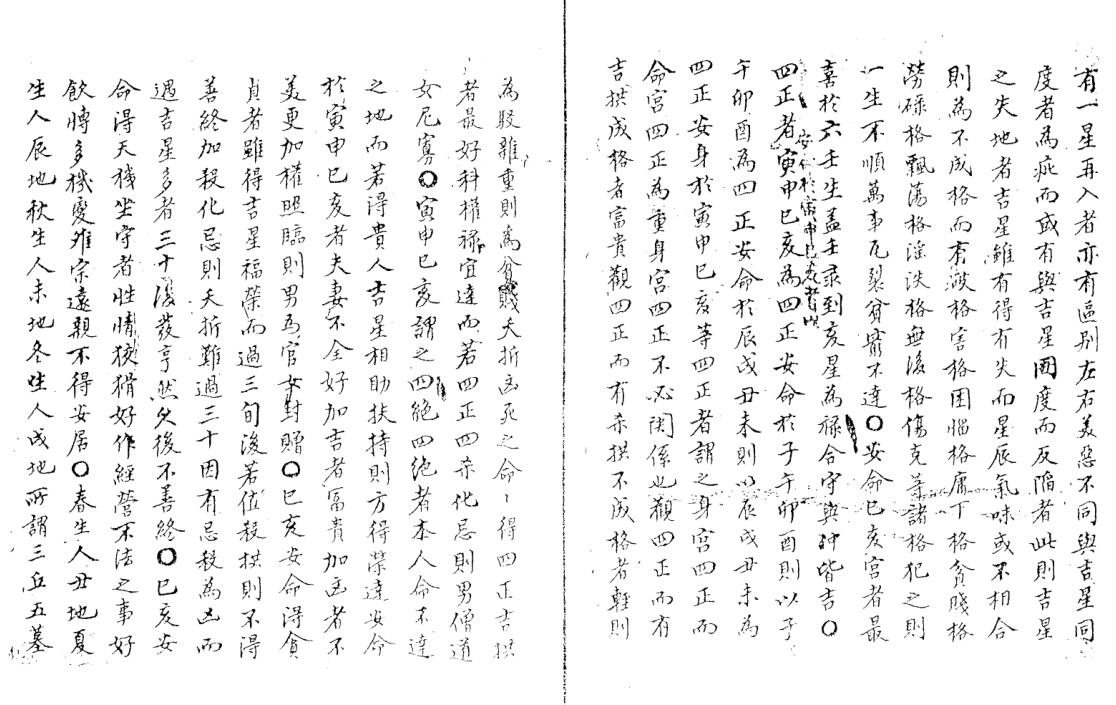 有一星再入者亦有區别左右美惡不同與吉星同
度者為疵而或有與吉星同度而反陷者此則吉星
之失地者吉星雖有得有失而星辰氣味或不相合
則為不成格而有破格害格困惱格庸下格貧賤格
勞碌格飄蕩格淫泆格無後格傷克等諸格犯之則
一生不順萬事瓦裂貧窮不達○安命巳亥宮者最
喜於六壬生盖壬彔到亥星為禄合守與冲皆吉○
四正者寅申巳亥為四正安命於子午卯酉則以子
安命於寅申巳亥者以
午卯酉為四正安命於辰戌丑未則以辰戌丑未為
四正安身於寅申巳亥等四正者謂之身宮四正而
命宮四正為重身宮四正不必関係也觀四正而有
吉拱成格者富貴觀四正而有杀拱不成格者輕則
為股雜重則為貧賤夭折凶死之命〻得四正吉拱
者最好科權禄宜達而若四正四杀化忌則男僧道
女尼寡○寅申巳亥謂之四絕四絕者本人命不達
之地而若得貴人吉星相助扶持則方得榮達安命
於寅申巳亥者夫妻不全好加吉者富貴加凶者不
美更加權照臨則男為官女封贈○巳亥安命得貪
貞者雖得吉星福榮而過三旬後若位殺拱則不得
善終加殺化忌則夭折難過三十因有忌殺為凶而
遇吉星多者三十後發亨然久後不善終○巳亥安
命得天機坐守者性情狡猾好作經營不法之事好
飲愽多機變难宗遠親不得安居○春生人丑地夏
生人辰地秋生人未地冬生人戌地所謂三丘五墓